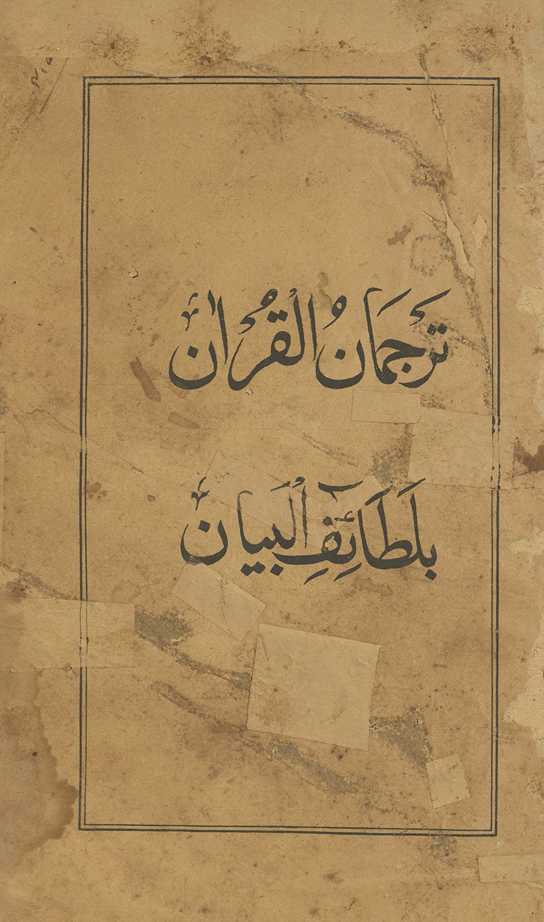 ترجمانُ القُرْان
بلَطَائِفِ البَيان